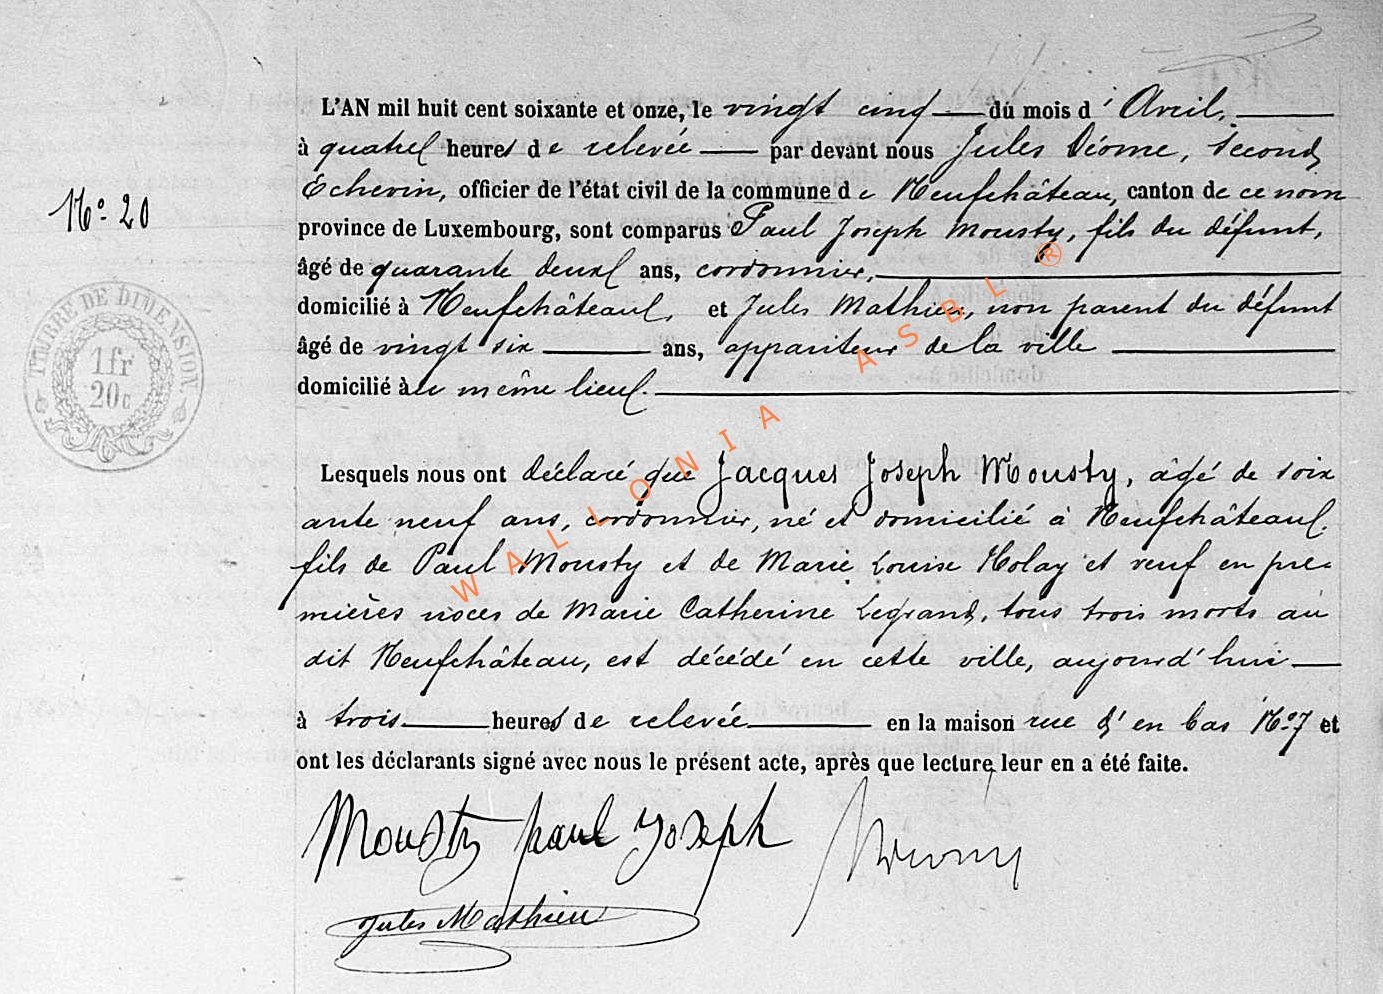 L'AN mil huit cent soixante et onze, le vingt cinq du mois d'Avril,
à quatre heures de relevée par devant nous Jules Déome, second
Echevin, officier de l'état civil de la commune de Neufchâteau, canton de ce nom
N° 20
province de Luxembourg, sont comparus Paul Joseph Mousty, fils du défunt,
âgé de quarante deux ans, cordonnier,
domicilié à Neufchâteau, et Jules Mathieu, non parent du défunt
âgé de vingt six ans, appariteur de la ville
domicilié au même lieu.
TIMBRE DE DIMENSION
1fr
20c
Lesquels nous ont déclaré que Jacques Joseph Mousty, âgé de soix
ante neuf ans, cordonnier, né et domicilié à Neufchâteau,
fils de Paul Mousty et de Marie Louise Holay et veuf en pre-
mières noces de Marie Catherine Legrand, tous trois morts au
dit Neufchâteau, est décédé en cette ville, aujourd'hui
à trois heures de relevée en la maison rue d'en bas N° 7 et
ont les déclarants signé avec nous le présent acte, après que lecture leur en a été faite.
Mousty paul Joseph
Jules Mathieu
WALLONIA ASBL ®